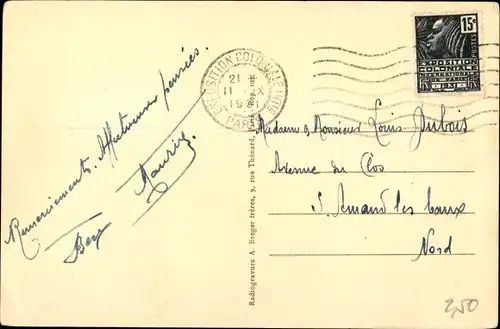 Remerciements. Affectueuses pensées.
Maurice
EXPOSITION COLONIALE INT
21
11 IX
1931
PARIS
15c
POSTES
EXPOSITION
COLONIALE
INTERNATIONALE
PARIS
1931
Madame & Monsieur Louis Dubois
Avenue du Clos
S. Amand les Eaux
Nord
Radiogravure A. Breger frères, 9, rue Thénard, Paris
2,50